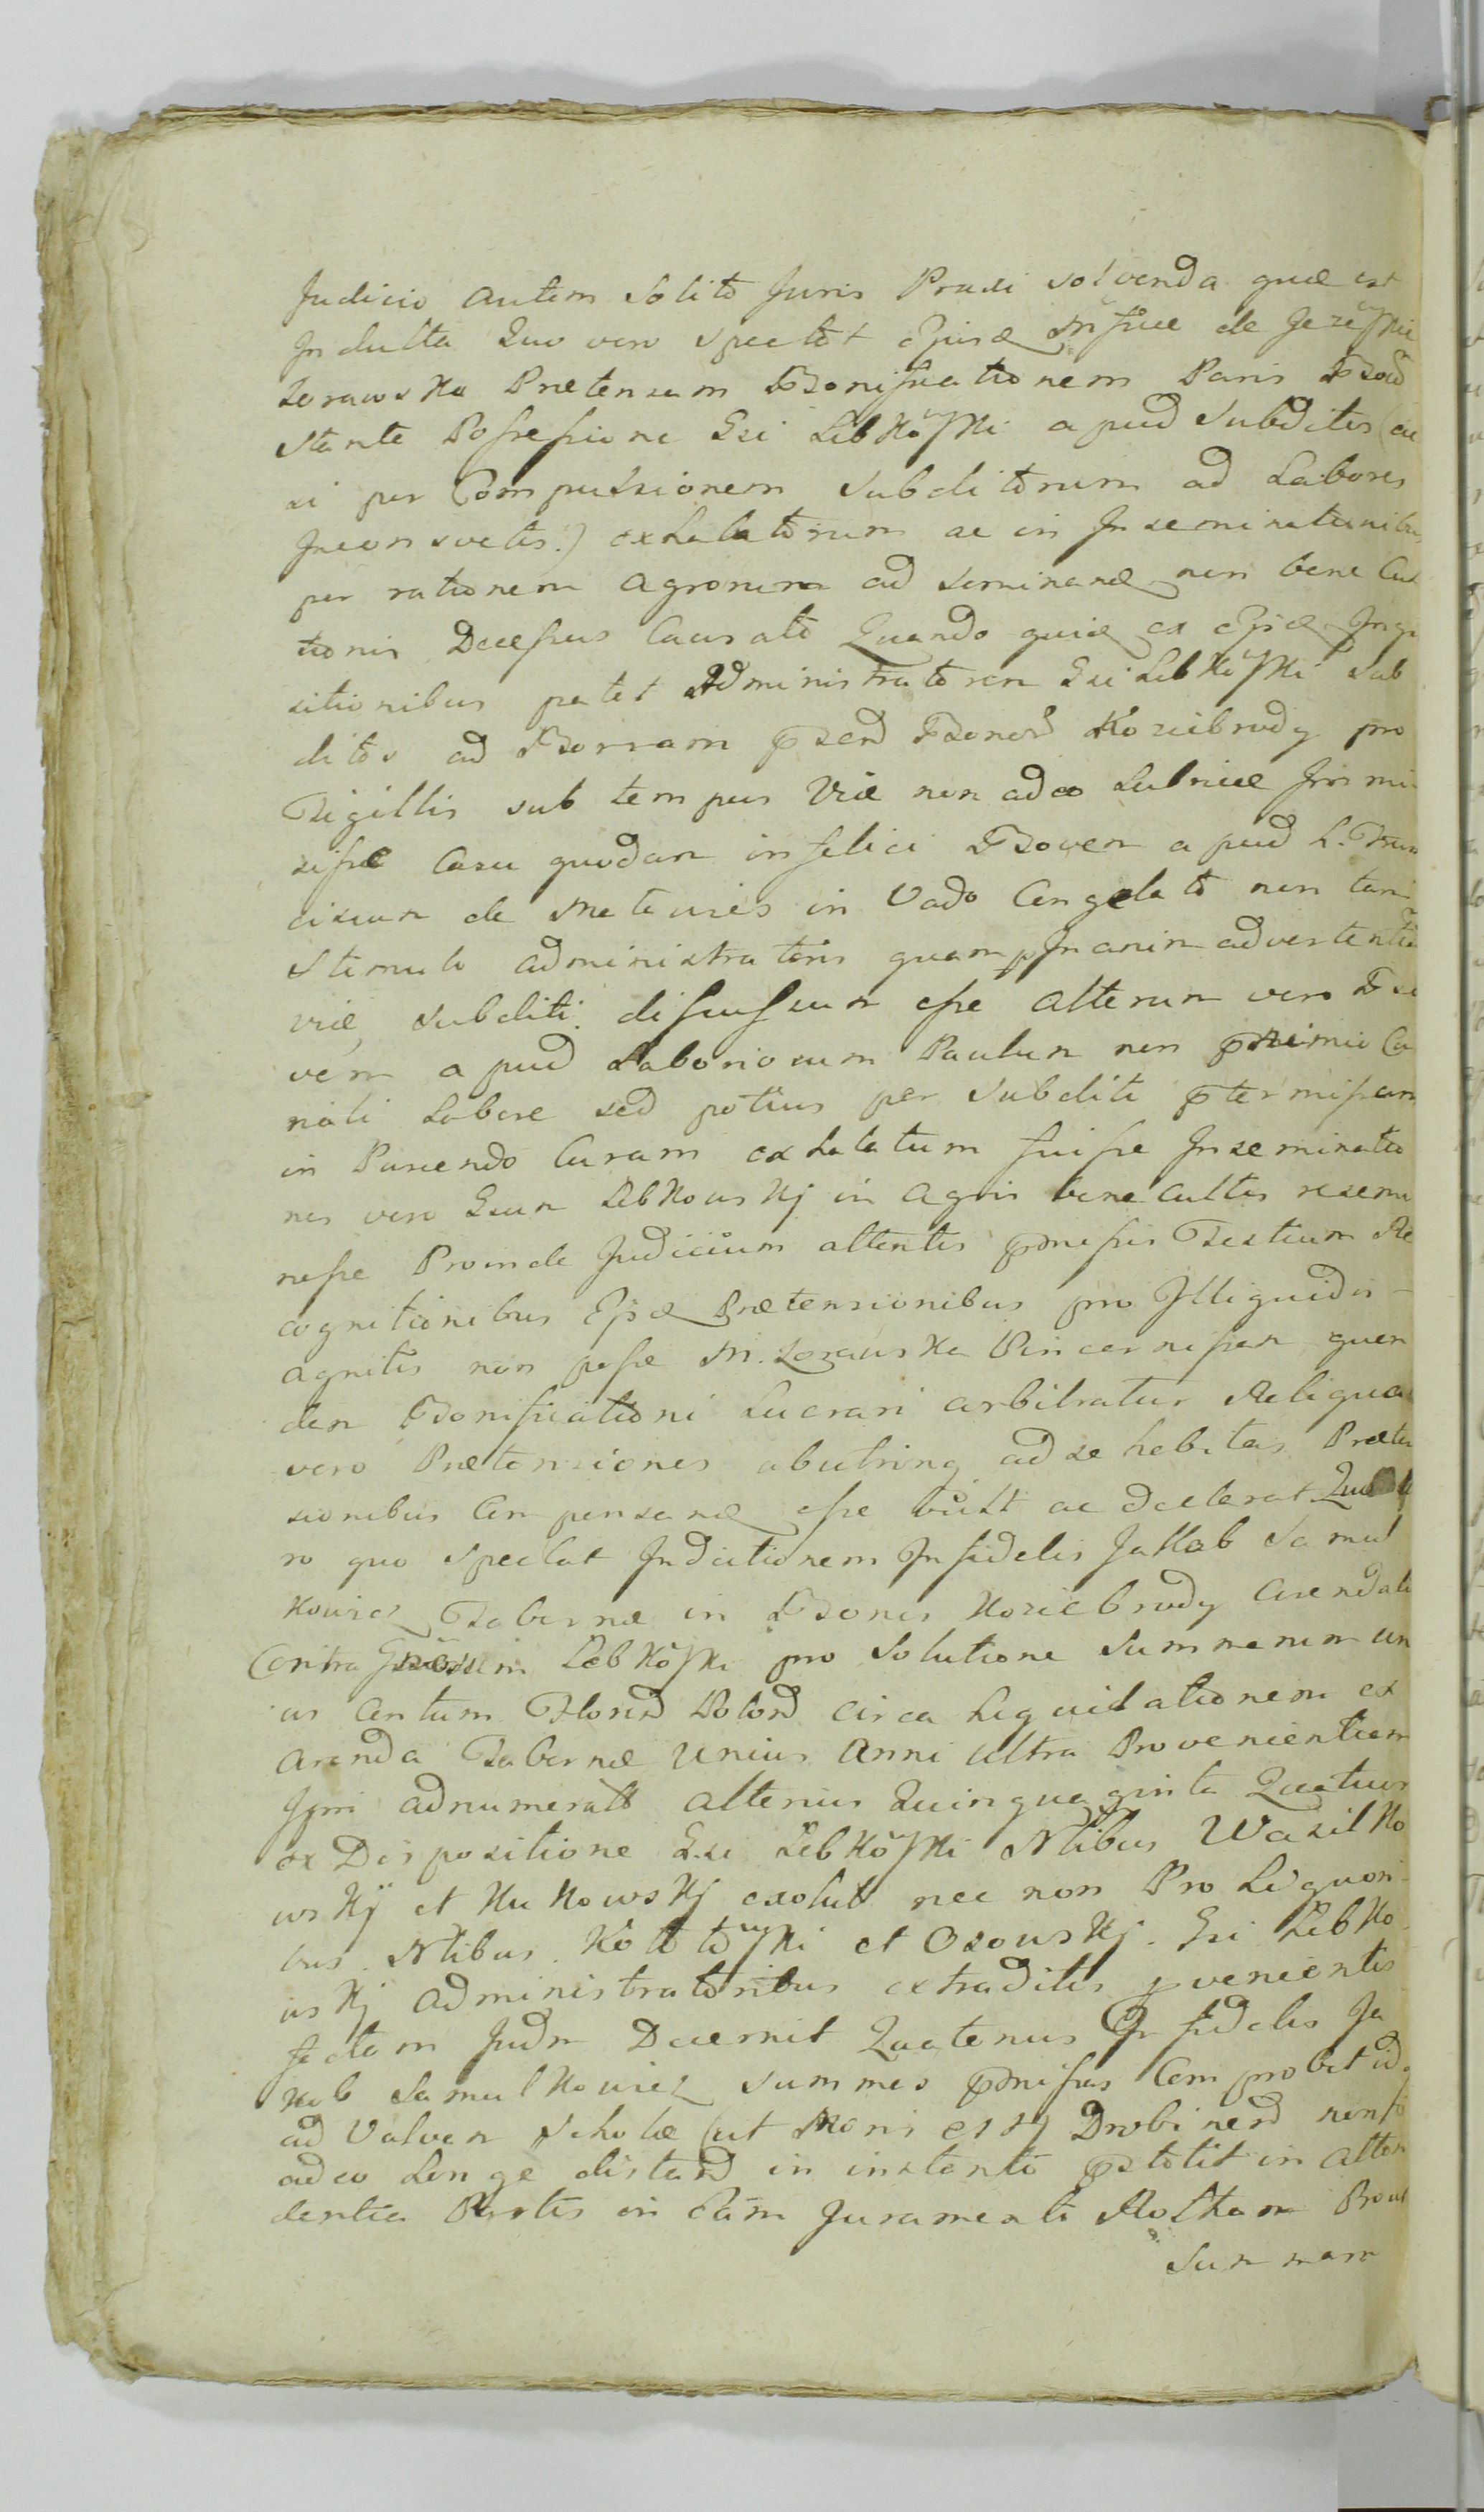 Judicio autem Solito Juris Praxi solvenda quæ est
Indulta Quo vero spectat
Lorawska Prætensam Bonificationem Paris Boũ
stante Possessione Gsi Lebkowski apud Subditos (ac
si per Compulsionem Subditorum ad Labores
Inconsvetos.) exhalatorum ac in Inseminationibus
per rationem agrorum ad seminand non bene Cul
tionis Decessus Causato Quando quidẽ ex Inqui
sitionibus patet Administratorem Gsi Lebkowski Sub
ditos ad Borram Bonorũ Koziebrody pro
Tigillis sub tempus Viæ non adeo Lubricæ Immi
sisse Casu quodam infelici Bovem apud L. Fran
ciscum de Metauies in Vado Congelato non tam
Stimulo administratoris quam p Inanim advertentiã
viæ subditi disfusum esse alterum vero Bo
vem apud Laboriosum Paulum non nimio Co
nati Labore sed potius per Subditi ptermissam
in Pascendo Curam exhalatum fuisse Inseminatio
nes vero Gsum Lebkowskj in agris bene cultis resemi
nasse Proinde Judicium attentis pmissis Testium Re
cognitionibus Prætensionibus pro Illiquidis
agnitis non posse M. Lorawska Pincernissam quen
dem Bonificationi Lucrari arbitratur Reliquas
vero Prætensiones abutrinq ad se habitas Præten
sionibus Compensand esse vult ac declarat
ro quo spectat Indicitionem Infidelis Jakob Samul
kowicz Tabernæ in Bonis Koziebrody Arendat
Contra Lebkowski pro Solutione Summarum un
ius Centum Floren Polon circa Liquidationem ex
Arenda Tabernæ unius Anni ultra Provenientiam
Ipsi adnumerat alterius Quinquaginta Quatuor
ex Dispositione Gsi Lebkowski Ntibus Wasilko
wskij et Kukowskj exolut nec non Pro Liquori
bus Ntibus Kottowski et Osowskj. Gsi Lebko
wskj Administratoribus extraditis pvenientis
factam Judm Decernit Quatenus Infidelis Ja
kob Samulkowicz summas pmissas Comprobet id
ad Valvam Scholæ (ut Moris est) Drobinens non
adeo Longe distan in instanti pstolit in atten
dentia Partis in eam Juramenti Rotham Prout
Summam